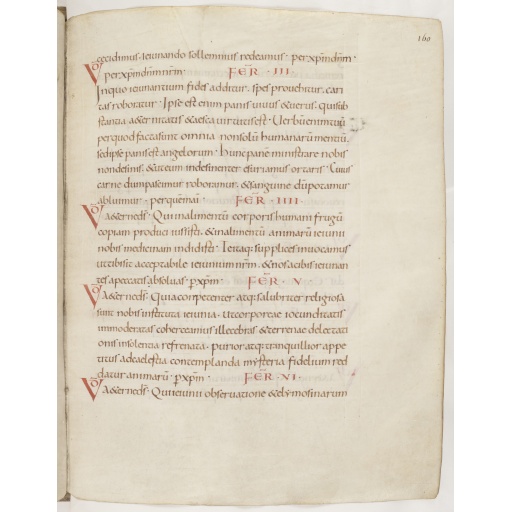 160
cecidimus. ieiunando sollemnius redeamus. per xpm dnm.
per xpm dnm nrm. FER. III.
In quo ieiunantium fides additur. spes prouehitur. cari
tas roboratur. Ipse est enim panis uiuus & uerus. qui sub
stantia aeternitatis & aesca uirtutis est. Uerbum enim tuum
per quod facta sunt omnia non solum humanarum mentium,
sed ipse panis est angelorum. Hunc panem ministrare nobis
non desinis. & ut eum indesinenter esuriamus ortaris. Cuius
carne dum pascimur roboramur. & sanguine dum potamur
abluimur. per quem mai. FER. IIII.
VD aeterne ds. Qui in alimentum corporis humani frugum
copiam produci iussisti. & in alimentum animarum ieiunii
nobis medicinam indidisti. Te itaq; supplices inuocamus
ut tibi sit acceptabile ieiunium nrm. & nos a cibis ieiunan
tes a peccatis absoluas. p xpm. FER. V.
VD aeterne ds. Quia conpetenter atq; salubriter religiosa
sunt nobis instituta ieiunia. Ut corporeae iocunditatis
immoderatas coherceamus illecebras & terrenae delectati
onis insolentia refrenata. purior atq; tranquillior appe
titus ad caelestia contemplanda mysteria fidelium red
datur animarum. p xpm. FER. VI.
VD aeterne ds. Qui ieiunii obseruatione & elymosinarum